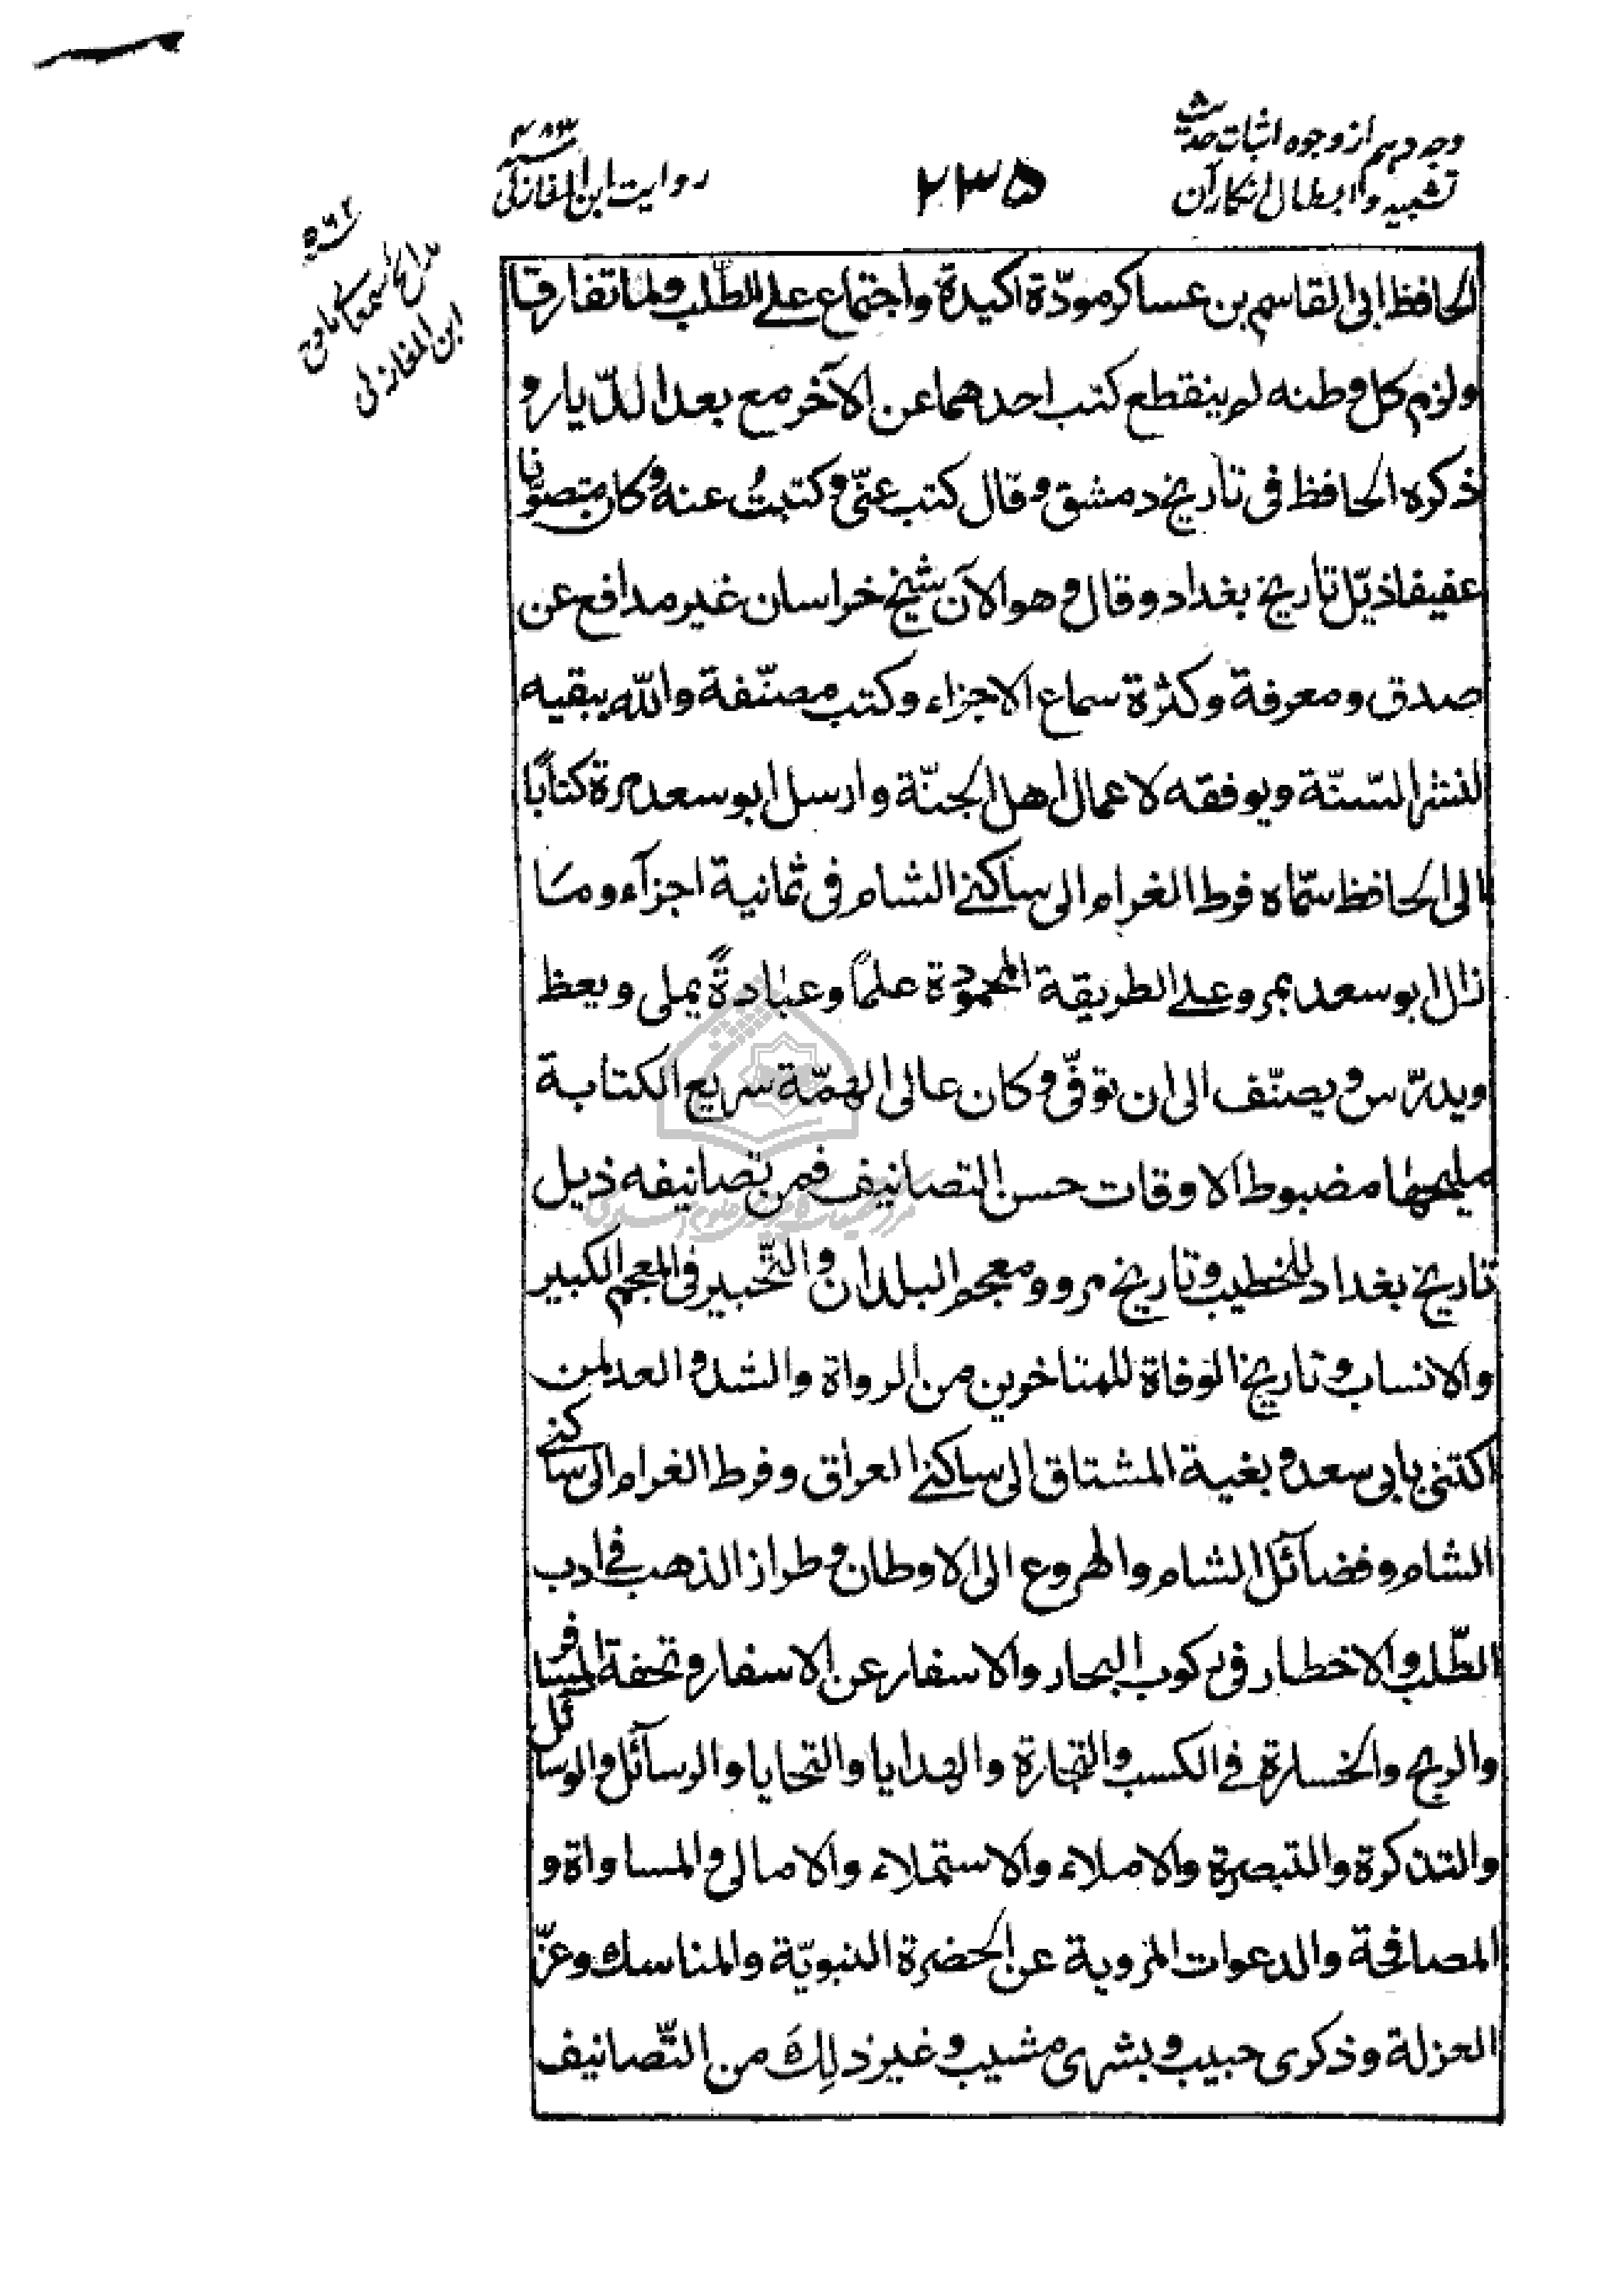 وجه دهم از وجوه اثبات حدیث
تشبیه و ابطال انکار آن
۲۳۵
روایت ابن المغازلی
سنه ۴۸۳
سنه ۵۶۲
ابن المغازلی
الحافظ ابی القاسم بن عساکر مودّة اکیدة واجتماع علی الطّلب ولما تفارقا
ولزم کل وطنه لم ینقطع کتب احدهما عن الآخر مع بعد الدّیار و
ذکره الحافظ فی تاریخ دمشق وقال کتب عنّی وکتبتُ عنه وکان متصوّنا
عفیفا ذیّل تاریخ بغداد وقال وهو الآن شیخ خراسان غیر مدافع عن
صدق ومعرفة وکثرة سماع الاجزاء وکتب مصنّفة والله یبقیه
لنشر السّنّة ویوفقه لاعمال اهل الجنّة وارسل ابو سعد مرة کتابًا
الی الحافظ سمّاه فرط الغرام الی ساکنی الشام فی ثمانیة اجزآء وما
زال ابو سعد بمرو علی الطریقة المحمودة علمًا وعبادةً یملی ویعظ
ویدرّس ویصنّف الی ان توفّی وکان عالی الهمّة سریع الکتابة
ملیحها مضبوط الاوقات حسن التصانیف فمن تصانیفه ذیل
تاریخ بغداد للخطیب وتاریخ مرو ومعجم البلدان والتّحبیر فی المعجم الکبیر
والانساب وتاریخ الوفاة للمتاخرین من الرواة والشد والعد لمن
اکتنی بابی سعد وبغیة المشتاق الی ساکنی العراق وفرط الغرام الی ساکنی
الشام وفضآئل الشام والهروع الی الاوطان وطراز الذهب فی ادب
الطّلب والاخطار فی رکوب البحار والاسفار عن الاسفار وتحفة المسافر
والربح والخسارة فی الکسب والتجارة والهدایا والتحایا والرسآئل والوسآئل
والتذکرة والتبصرة والاملاء والاستملاء والامالی والمساواة و
المصافحة والدعوات المرویة عن الحضرة النبویّة والمناسك وعزّ
العزلة وذکری حبیب وبشری مشیب وغیر ذلِكَ من التّصانیف